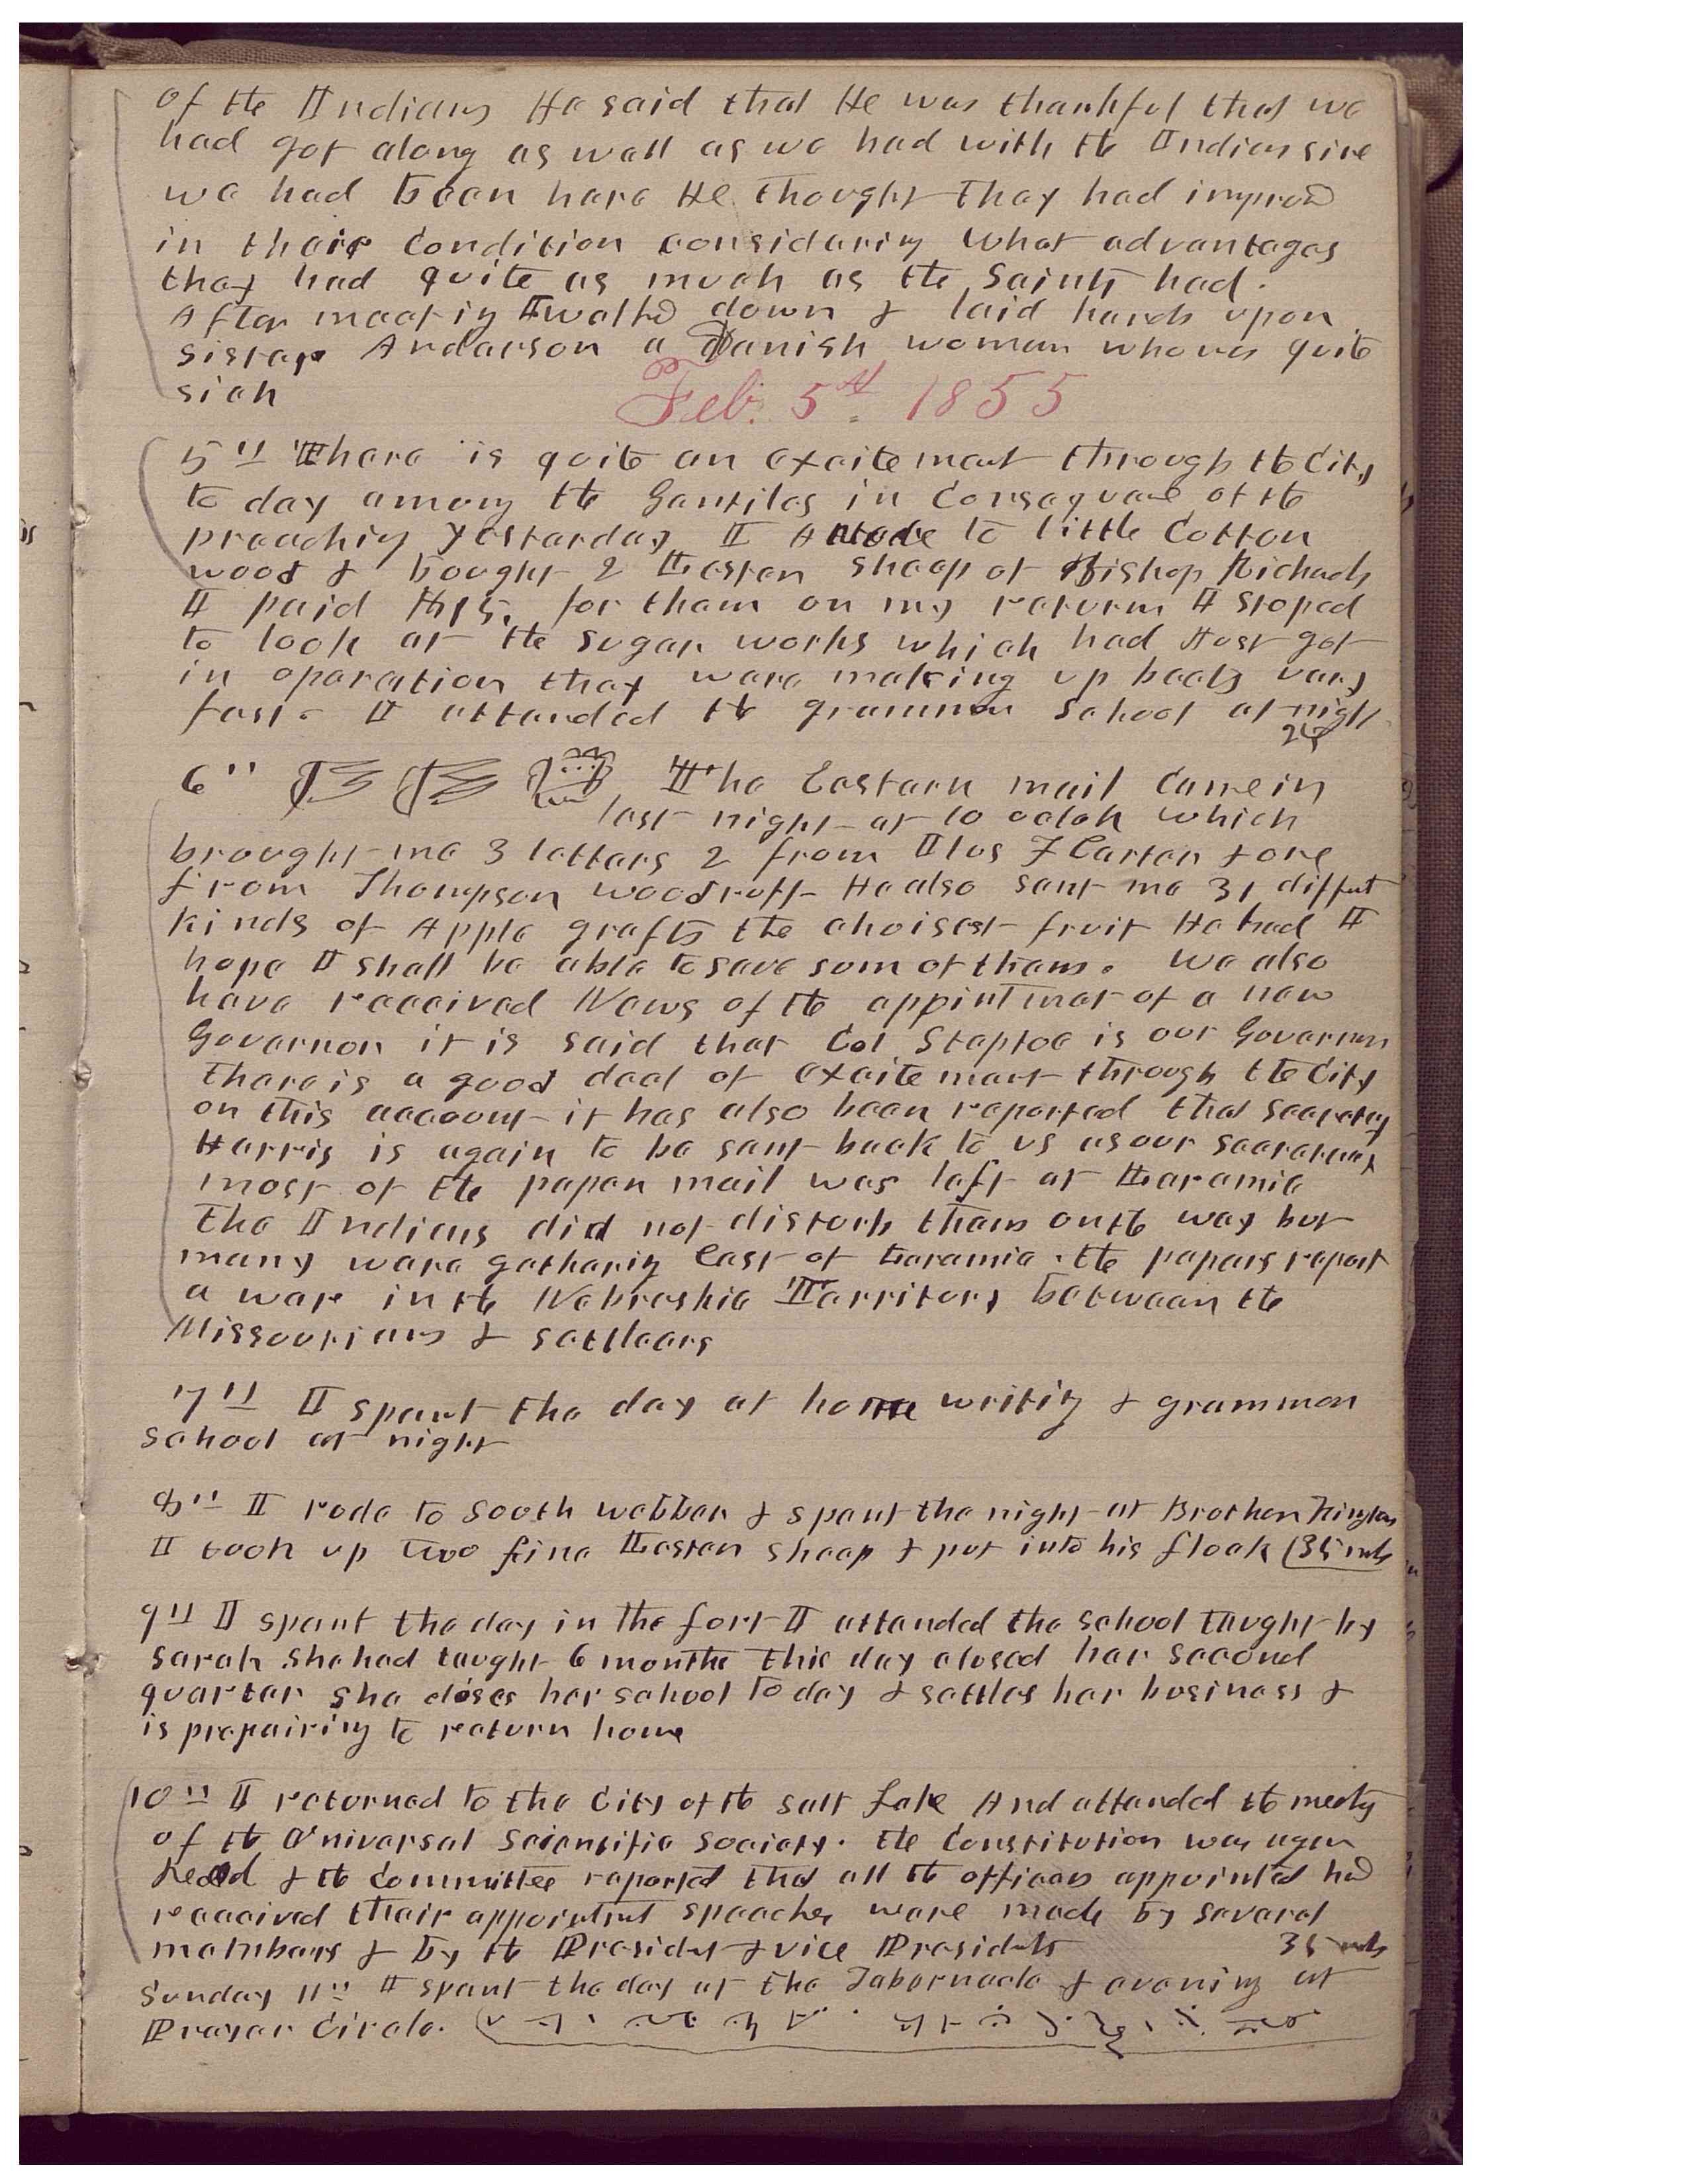 of the Indians He said that He was thankful that we
had got along as well as we had with the Indians since
we had been here He thought they had improved
in their condition considering what advantages
they had quite as much as the Saints had.
After meeting I walked down & laid hands upon
sister Anderson a Danish woman who was quite
sick
Feb. 5th. 1855
5" There is quite an excitement through the City
to day among the Gentiles in Consequence of the
preaching yesterday I rode to little Cotton
wood & bought 2 Lester sheep of Bishop Richards
I paid $15. for them on my return I stoped
to look at the sugar works which had Just got
in operation they were making up beets very
fast. I attended the grammer School at night
24
6" The Eastern mail came in
last night at 10 oclok which
brought me 3 letters 2 from Ilus F Carter & one
from Thompson Woodruff He also sent me 31 diffent
kinds of Apple grafts the choisest fruit He had I
hope I shall be able to save som of them. We also
have received News of the appintmet of a new
Governor it is said that Col Steptoe is our Governor
there is a good deal of excitement through the City
on this account it has also been reported that secretery
Harris is again to be sent back to us as our secretary
most of the paper mail was left at Laramie
the Indians did not disturb them on the way but
many were gathering East of Laramie. the papers report
a war in the Nebraskia Territory between the
Missourians & settleers
7" I spent the day at home writing & grammer
School at night
8" I rode to South webber & spent the night at Brother Kington
I took up two fine Lester sheep & put into his flock (35 mls
9" I spent the day in the fort I attended the school taught by
Sarah she had taught 6 months this day closed her second
quarter she closes her school to day & settles her business &
is prepairing to return home
10" I returned to the City of the Salt Lake And attended the meetg
of the Universal Scientific Society. the Constitution was agen
Read & the Committee reported that all the officers appointed had
received their appointmt speeches were made by several
members & by the Presidet & vice Presidets 35 mls
Sunday 11" I spent the day at the Tabernacle & evening at
Prayer Circle.